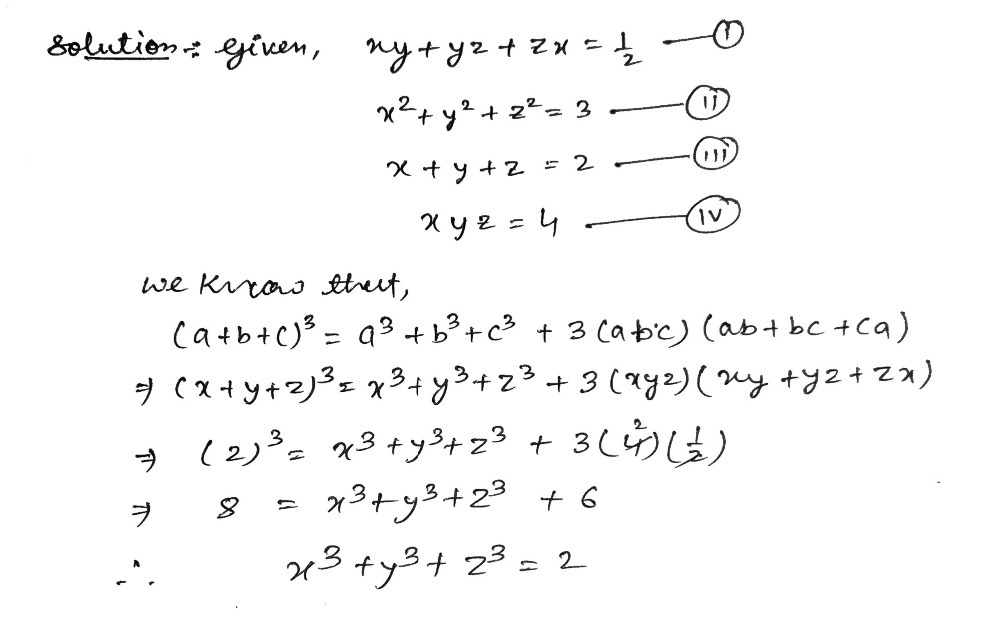 Solution :- Given, xy + yz + zx = 1/2 —— (I)
x² + y² + z² = 3 —— (II)
x + y + z = 2 —— (III)
xyz = 4 —— (IV)
We know that,
(a+b+c)³ = a³ + b³ + c³ + 3(abc)(ab + bc + ca)
⇒ (x+y+z)³ = x³ + y³ + z³ + 3(xyz)(xy + yz + zx)
⇒ (2)³ = x³ + y³ + z³ + 3(4̸ 2)(1/2̸)
⇒ 8 = x³ + y³ + z³ + 6
∴ x³ + y³ + z³ = 2